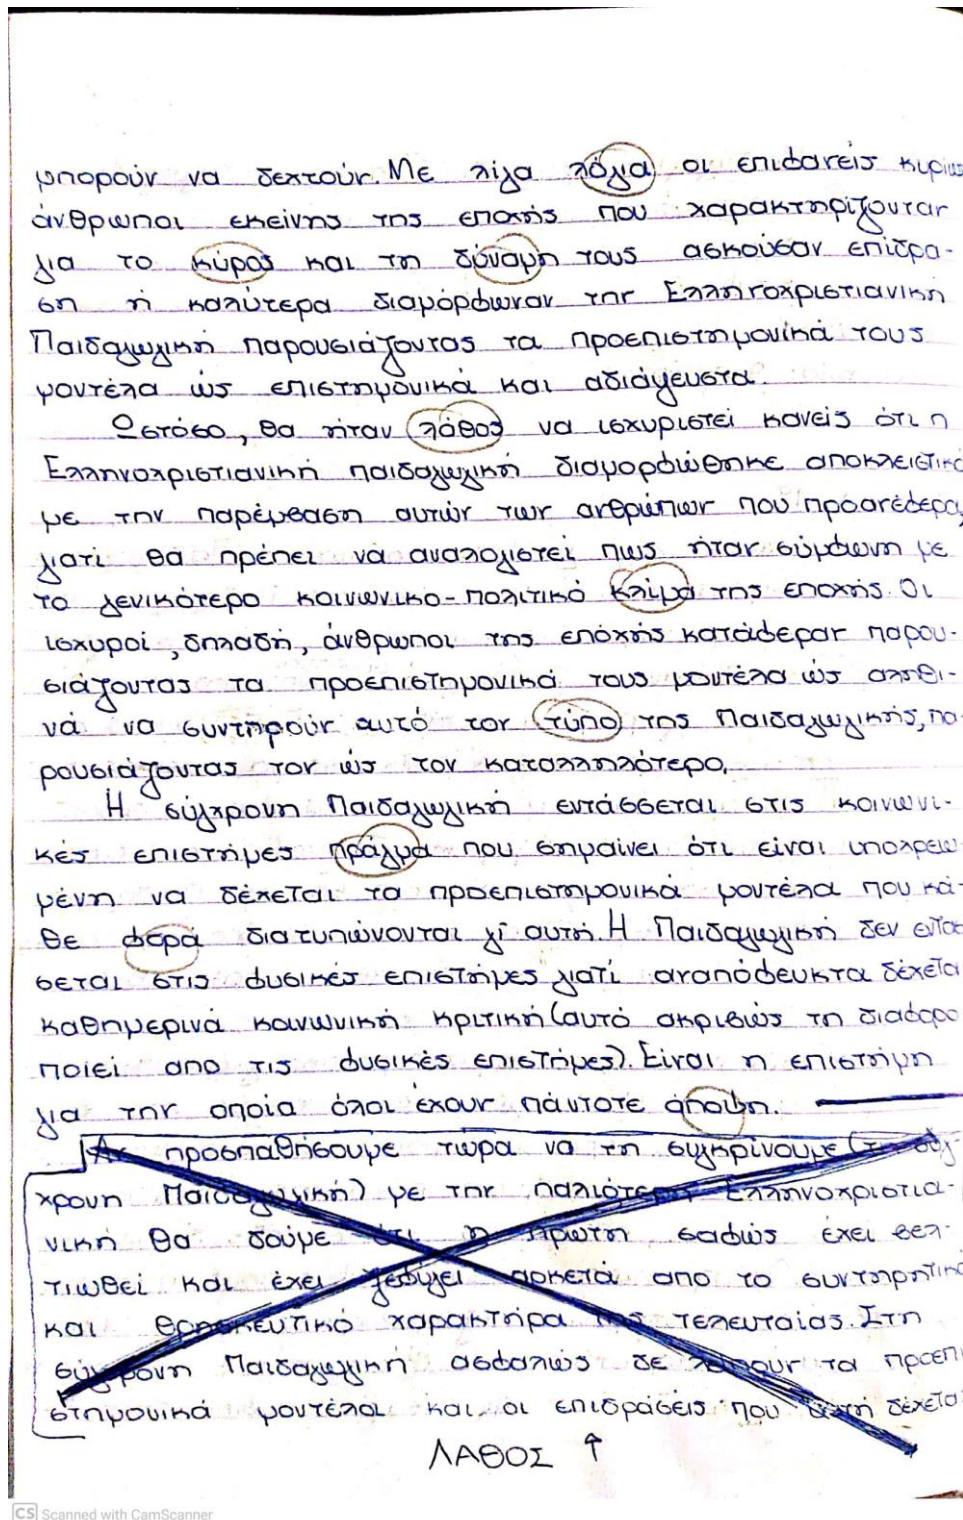 μπορούν να δεχτούν. Με λίγα λόγια οι επιφανείς κυρίως
άνθρωποι εκείνης της εποχής που χαρακτηρίζονταν
για το κύρος και τη δύναμη τους ασκούσαν επίδρα-
ση ή καλύτερα διαμόρφωναν την Ελληνοχριστιανική
Παιδαγωγική παρουσιάζοντας τα προεπιστημονικά τους
μοντέλα ώς επιστημονικά και αδιάψευστα.
Ωστόσο, θα ήταν λάθος να ισχυριστεί κανείς ότι η
Ελληνοχριστιανική παιδαγωγική διαμορφώθηκε αποκλειστικά
με την παρέμβαση αυτών των ανθρώπων που προανέφερα,
γιατί θα πρέπει να αναλογιστεί πως ήταν σύμφωνη με
το γενικότερο κοινωνικο-πολιτικό κλίμα της εποχής. Οι
ισχυροί, δηλαδή, άνθρωποι της επόχής κατάφεραν παρου-
σιάζοντας τα προεπιστημονικά τους μοντέλα ώς αληθι-
νά να συντηρούν αυτό τον τύπο της Παιδαγωγικής, πα-
ρουσιάζοντας τον ώς τον καταλληλότερο.
Η σύγχρονη Παιδαγωγική εντάσσεται στις κοινωνι-
κές επιστήμες πράγμα που σημαίνει ότι είναι υποχρεω-
μένη να δέχεται τα προεπιστημονικά μοντέλα που κά-
θε φορά διατυπώνονται γι' αυτή. Η Παιδαγωγική δεν εντάσ
σεται στις φυσικές επιστήμες γιατί αναπόφευκτα δέχεται
καθημερινά κοινωνική κριτική (αυτό ακριβώς τη διαφορο
ποιεί απο τις φυσικές επιστήμες). Είναι η επιστήμη
για την οποία όλοι έχουν πάντοτε άποψη.
Αν προσπαθήσουμε τώρα να τη συγκρίνουμε (τη σύγ-
χρονη Παιδαγωγική) με την παλιότερη Ελληνοχριστια-
νική θα δούμε ότι η πρώτη σαφώς έχει βελ-
τιωθεί και έχει ξεφύγει αρκετά απο το συντηρητικό
και θρησκευτικό χαρακτήρα της τελευταίας. Στη
σύγχρονη Παιδαγωγική ασφαλώς δε λείπουν τα προεπι
στημονικά μοντέλα και οι επιδράσεις που αυτή δέχεται
ΛΑΘΟΣ ↑
CS Scanned with CamScanner